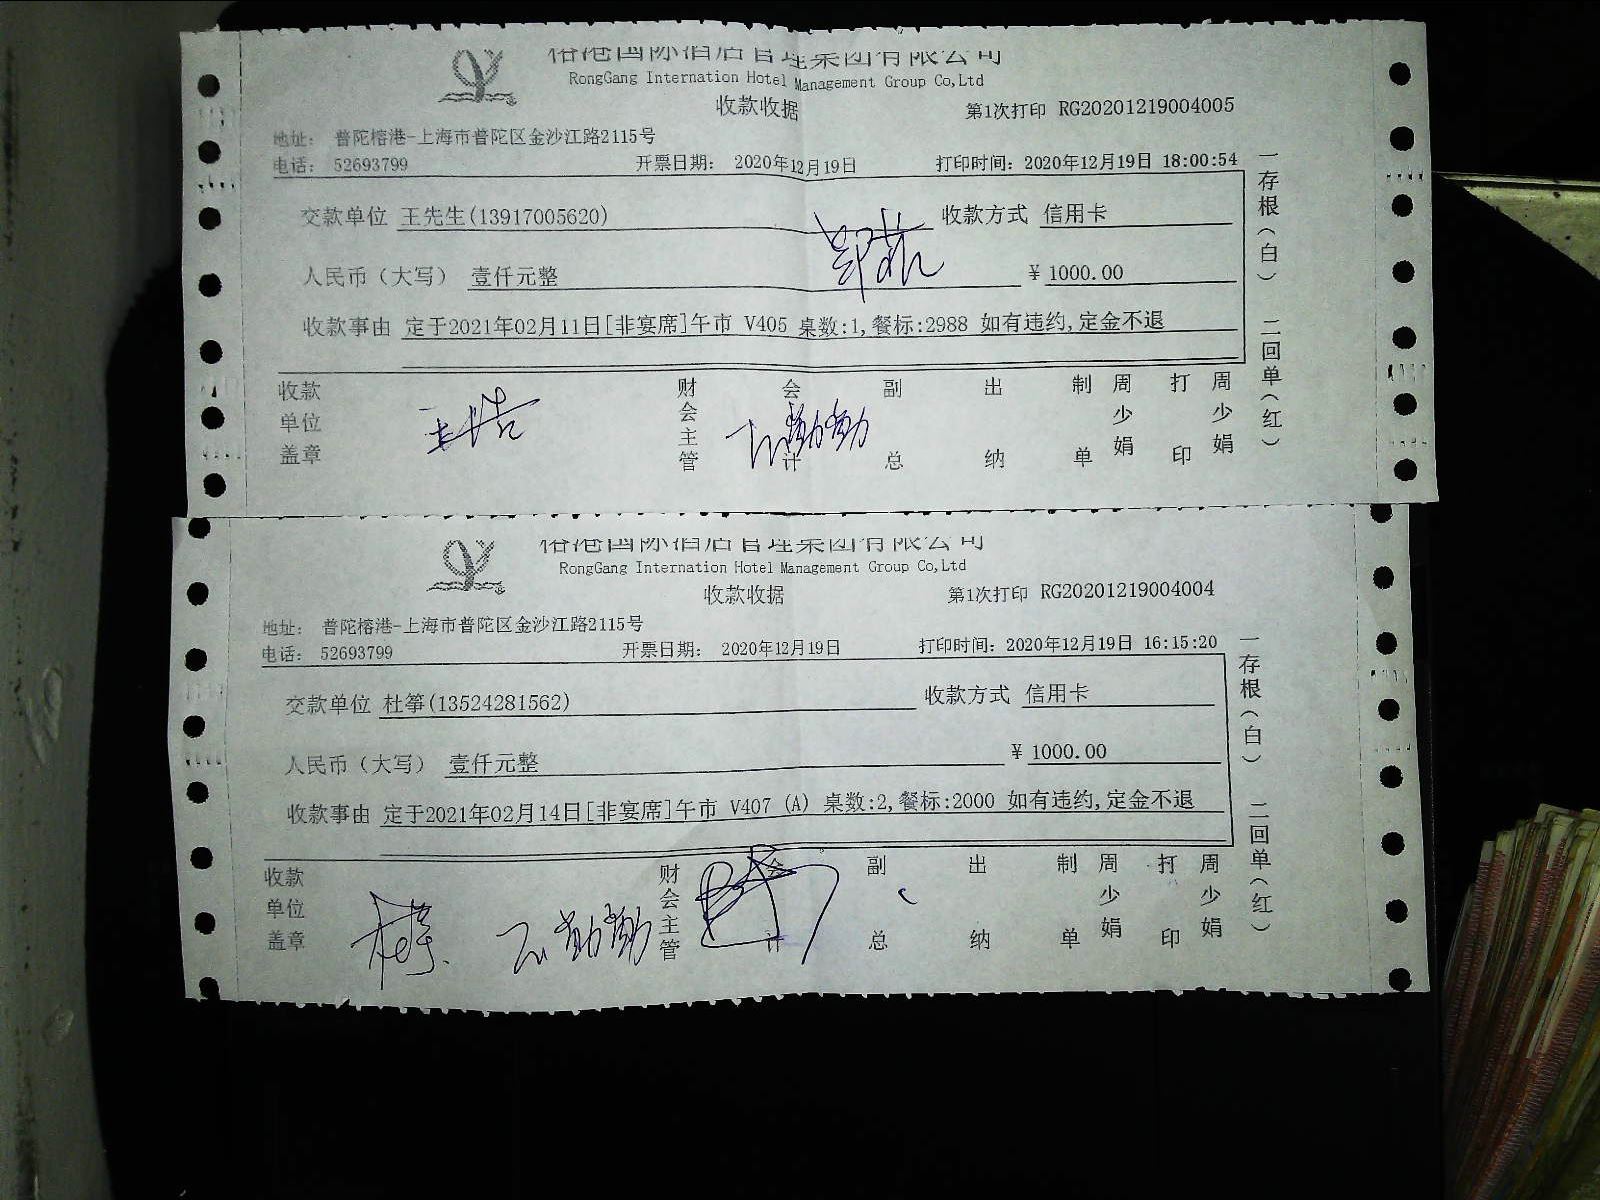 榕港国际酒店管理集团有限公司
RongGang Internation Hotel Management Group Co,Ltd
收款收据
第1次打印 RG20201219004005
地址： 普陀榕港-上海市普陀区金沙江路2115号
电话： 52693799 开票日期： 2020年12月19日 打印时间：2020年12月19日 18:00:54
交款单位 王先生(13917005620) 收款方式 信用卡
人民币（大写） 壹仟元整 ￥ 1000.00
收款事由 定于2021年02月11日[非宴席]午市 V405 桌数:1,餐标:2988 如有违约,定金不退
收款单位盖章 王浩 财会主管 会计 副总 出纳 制单 周少娟 打印 周少娟
一存根（白） 二回单（红）
榕港国际酒店管理集团有限公司
RongGang Internation Hotel Management Group Co,Ltd
收款收据
第1次打印 RG20201219004004
地址： 普陀榕港-上海市普陀区金沙江路2115号
电话： 52693799 开票日期： 2020年12月19日 打印时间：2020年12月19日 16:15:20
交款单位 杜筝(13524281562) 收款方式 信用卡
人民币（大写） 壹仟元整 ￥ 1000.00
收款事由 定于2021年02月14日[非宴席]午市 V407 (A) 桌数:2,餐标:2000 如有违约,定金不退
收款单位盖章 财会主管 会计 副总 出纳 制单 周少娟 打印 周少娟
一存根（白） 二回单（红）